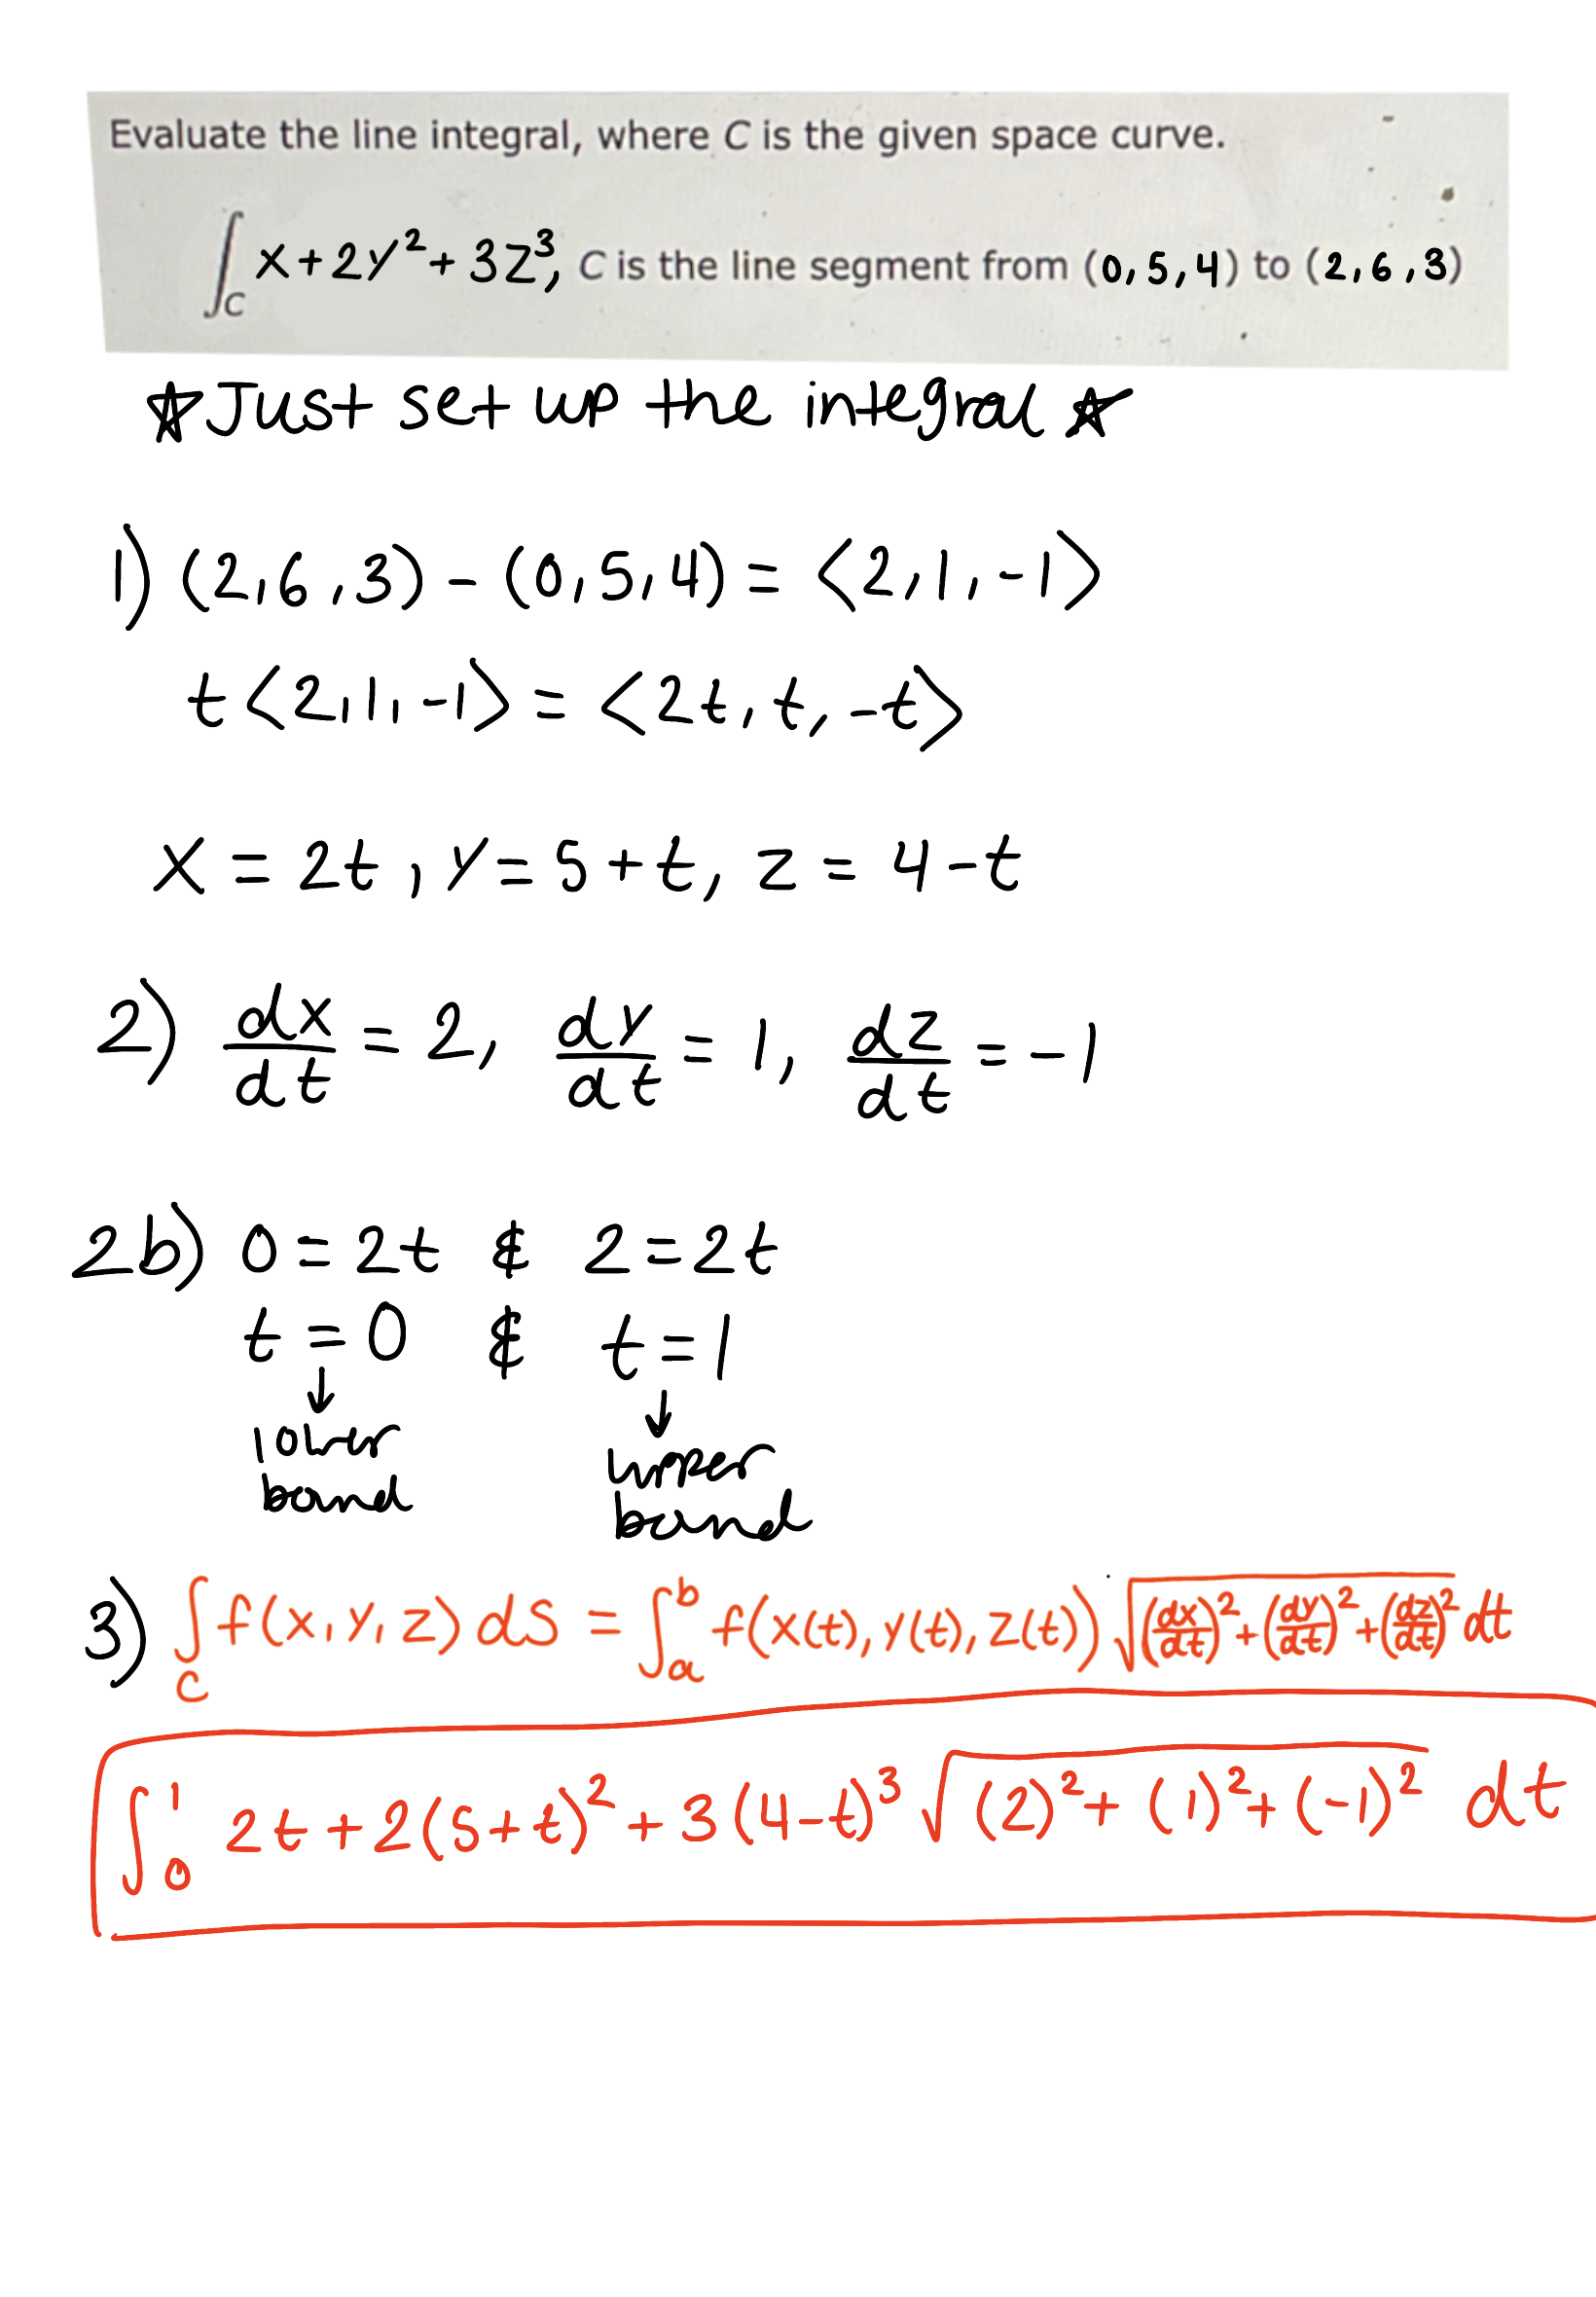 Evaluate the line integral, where C is the given space curve.
∫_C x+2y²+3z³, C is the line segment from (0,5,4) to (2,6,3)
☆Just set up the integral☆
1) (2,6,3) - (0,5,4) = <2,1,-1>
t<2,1,-1> = <2t, t, -t>
x = 2t, y = 5+t, z = 4-t
2) dx/dt = 2, dy/dt = 1, dz/dt = -1
2b) 0=2t & 2=2t
t=0 & t=1
↓ ↓
lower upper
bound bound
3) ∫_C f(x,y,z) ds = ∫_a^b f(x(t),y(t),z(t)) √((dx/dt)²+(dy/dt)²+(dz/dt)²) dt
∫_0^1 2t+2(5+t)²+3(4-t)³ √((2)²+(1)²+(-1)²) dt